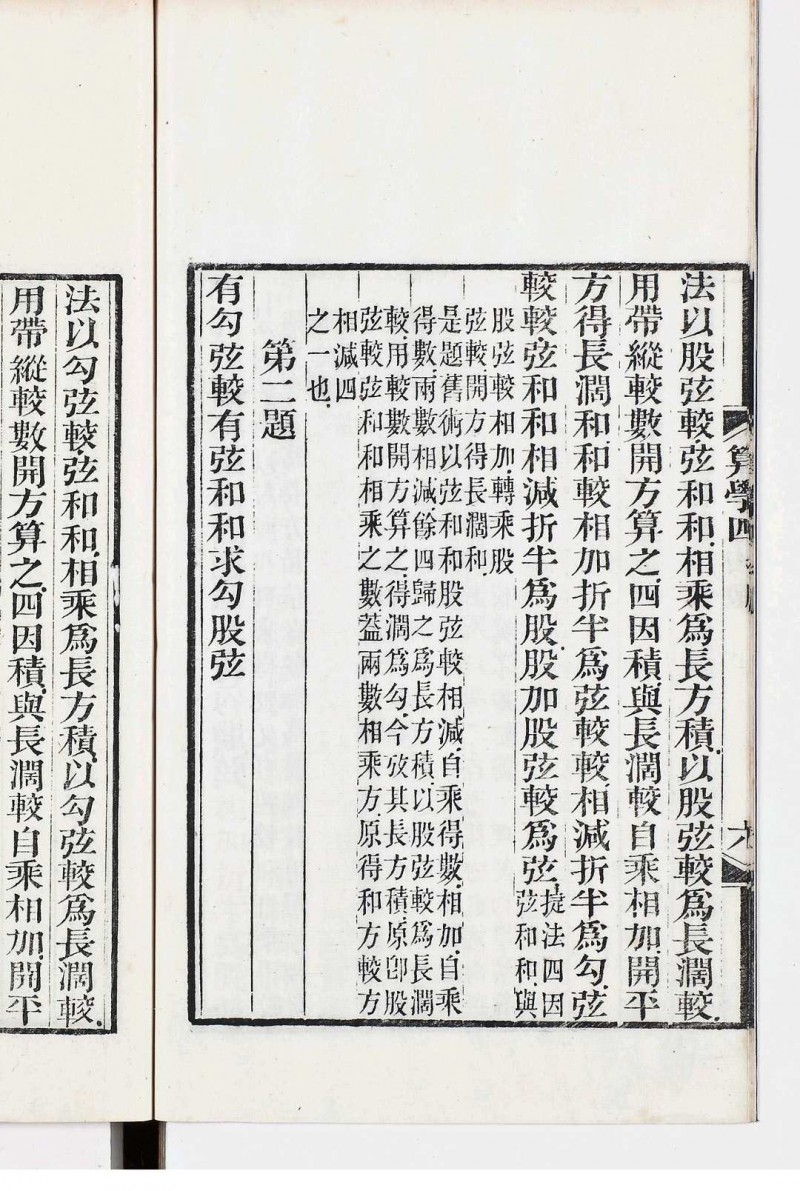 法以股弦較弦和和相乘爲長方積以股弦較爲長濶較
用帶縱較數開方算之四因積與長濶較自乘相加開平
方得長濶和和較相加折半爲弦較較相減折半爲勾弦
較較弦和和相減折半爲股股加股弦較爲弦㨗法四因
弦和和與
股弦較相加轉乘股
弦較開方得長濶和
是題舊術以弦和和股弦較相減自乘得數相加自乘
得數兩數相減餘四歸之爲長方積以股弦較爲長濶
較用較數開方算之得濶爲勾今攷其長方積原卽股
弦較弦和和相乘之數葢兩數相乘方原得和方較方
相減四
之一也
第二題
有勾弦較有弦和和求勾股弦
算學四
六
法以勾弦較弦和和相乘爲長方積以勾弦較爲長濶較
用帶縱較數開方算之四因積與長濶較自乘相加開平